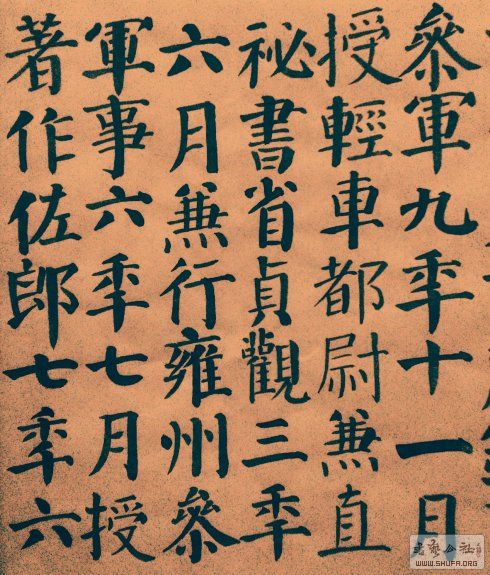 參軍九年十一月
授輕車都尉兼直
祕書省貞觀三年
六月兼行雍州參
軍事六年七月授
著作佐郎七年六
WWW.SHUFA.ORG